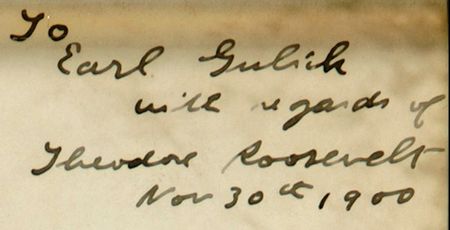 To
Earl Gulick
with regards of
Theodore Roosevelt
Nov 30th, 1900